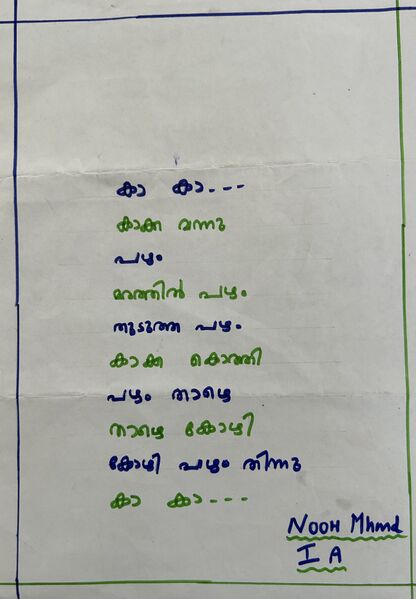 കാ കാ---
കാക്ക വന്നു
പഴം
മരത്തിൽ പഴം
തുടുത്ത പഴം
കാക്ക കൊത്തി
പഴം താഴെ
താഴെ കോഴി
കോഴി പഴം തിന്നു
കാ കാ---
NOOH Mhmd
I A